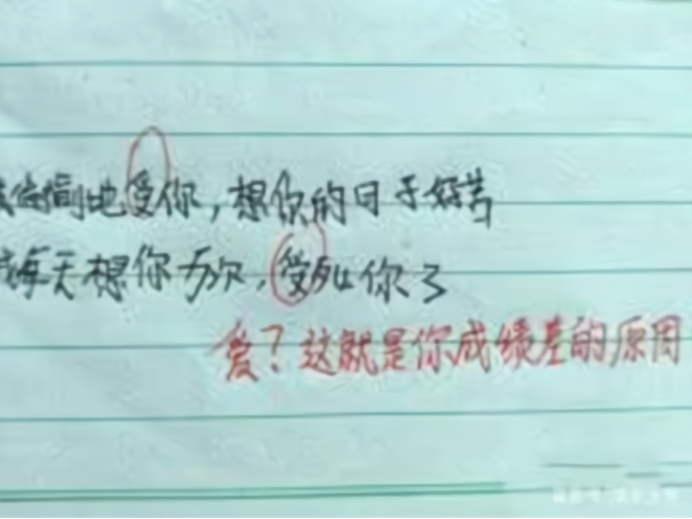 地受你，想你的日子好苦
每天想你万次，受死你了
爱？这就是你成绩差的原因